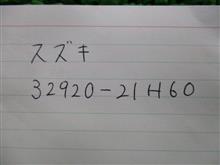 スズキ
32920-21H60